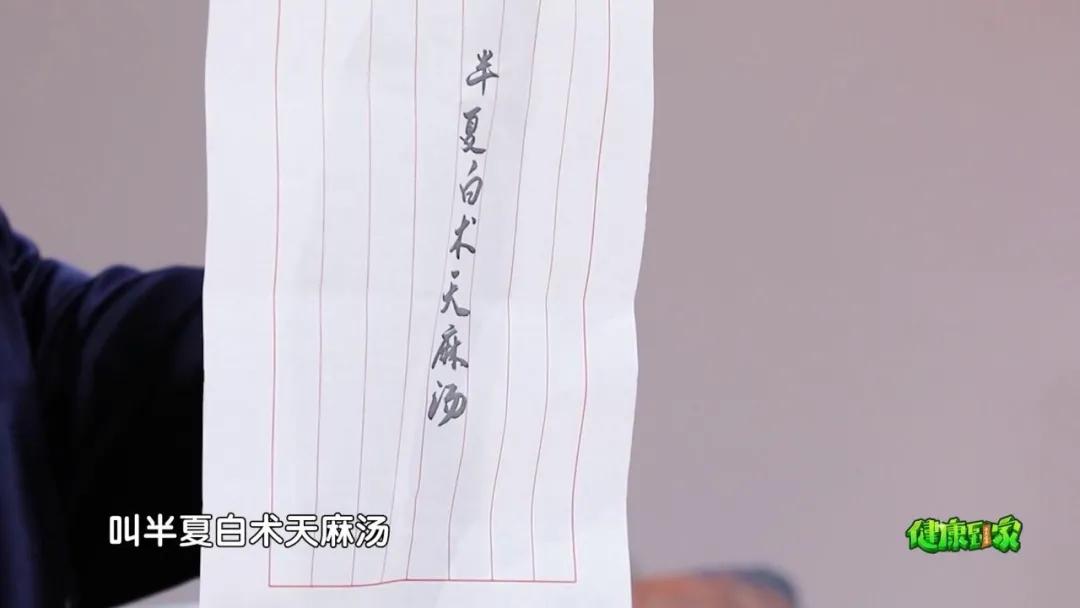 半夏白术天麻汤
叫半夏白术天麻汤
健康到家